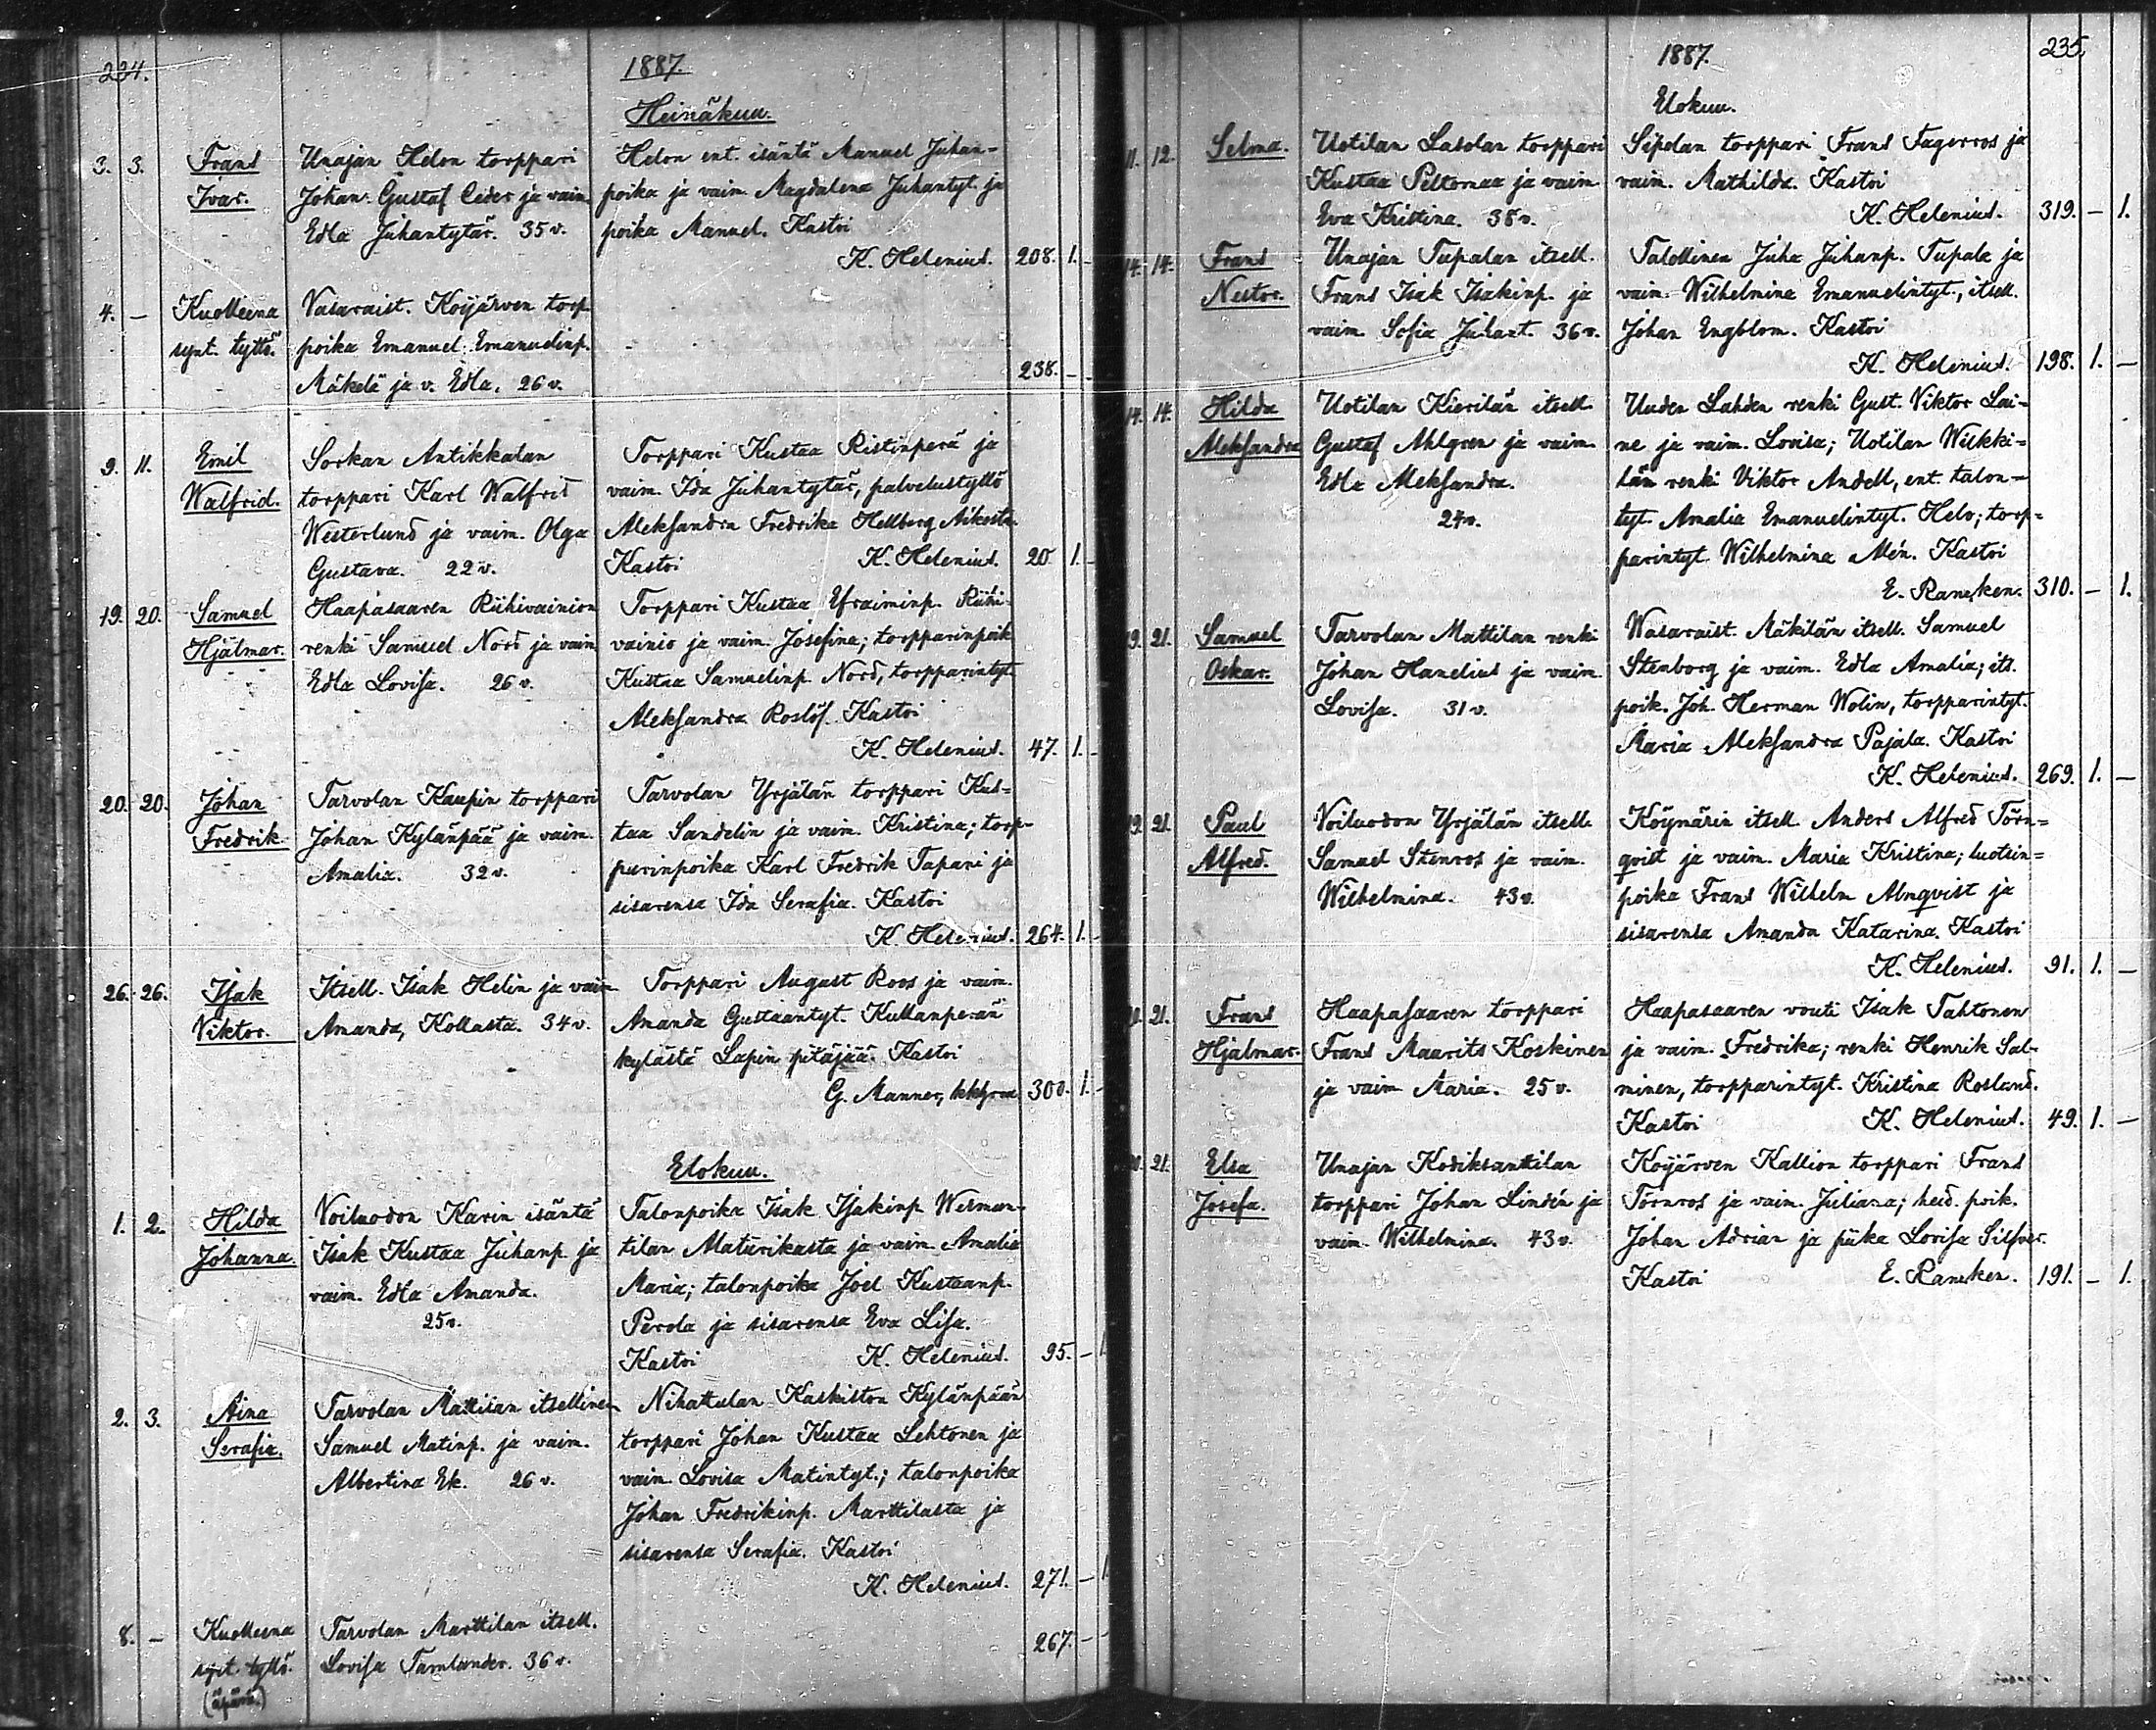 234.
1887.
Heinäkuu.
3. 3. Frans Unajan Helon torppari Helon ent. isäntä Manuel Juhan-
Ivar. Johan Gustaf Ceder ja vaim. poika ja vaim. Magdalena Juhantyt. ja
Edla Juhantytär. 35 v. poika Manuel. Kastoi
K. Helenius. 208. 1. -
4. - Kuolleena Vasaraist. Koijärven torp.
synt. tyttö. poika Emanuel Emanuelinp.
Mäkelä ja v. Edla. 26 v. 238. - -
9. 11. Emil Sorkan Antikkalan Torppari Kustaa Ristinperä ja
Walfrid. torppari Karl Walfrid vaim. Ida Juhantytär, palvelustyttö
Westerlund ja vaim. Olga Aleksandra Fredrika Hellberg Aikosta.
Gustava. 22 v. Kastoi K. Helenius. 20. 1. -
19. 20. Samuel Haapasaaren Riihivainion Torppari Kustaa Efraiminp. Riihi-
Hjalmar. renki Samuel Nord ja vaim. vainio ja vaim. Josefina; torpparinpoik.
Edla Lovisa. 26 v. Kustaa Samuelinp. Nord, torpparintyt.
Aleksandra Roslöf. Kastoi
K. Helenius. 47. 1. -
20. 20. Johan Tarvolan Kaupin torppari Tarvolan Yrjälän torppari Kus-
Fredrik. Johan Kylänpää ja vaim. taa Sandelin ja vaim. Kristina; torp-
Amalia. 32 v. parinpoika Karl Fredrik Tapani ja
sisarensa Ida Serafia. Kastoi
K. Helenius. 264. 1. -
26. 26. Isak Itsell. Isak Helin ja vaim. Torppari August Roos ja vaim.
Viktor. Amanda, Kollasta. 34 v. Amanda Gustaantyt. Kullanperän
kylästä Lapin pitäjää. Kastoi
G. Manner, kkhrra 300. 1. -
Elokuu.
1. 2. Hilda Voiluodon Karin isäntä Talonpoika Isak Isakinp. Welman-
Johanna. Isak Kustaa Juhanp. ja tilan Maturikasta ja vaim. Amalia
vaim. Edla Amanda. Maria; talonpoika Joel Kustaanp.
25 v. Perola ja sisarensa Eva Lisa.
Kastoi K. Helenius. 95. - 1.
2. 3. Aina Tarvolan Mattilan itsellinen Nihattulan Kaskiston Kylänpään
Serafia. Samuel Matinp. ja vaim. torppari Johan Kustaa Lehtonen ja
Albertina Ek. 26 v. vaim. Lovisa Matintyt.; talonpoika
Johan Fredrikinp. Marttilasta ja
sisarensa Serafia. Kastoi
K. Helenius. 271. - 1.
8. - Kuolleena Tarvolan Marttilan itsell.
synt. tyttö. Lovisa Tamlander. 36 v. 267. - -
(äpärä.)
1887. 235.
Elokuu.
11. 12. Selma. Uotilan Lasolan torppari Sipolan torppari Frans Fagerros ja
Kustaa Peltomaa ja vaim. vaim. Mathilda. Kastoi
Eva Kristina. 38 v. K. Helenius. 319. - 1.
14. 14. Frans Unajan Tupalan itsell. Talollinen Juha Juhanp. Tupala ja
Nestor. Frans Isak Isakinp. ja vaim. Wilhelmina Emanuelintyt., itsell.
vaim. Sofia Juhant. 36 v. Johan Engblom. Kastoi
K. Helenius. 198. 1. -
14. 14. Hilda Uotilan Kierilän itsell. Uuden Lahden renki Gust. Viktor Lai-
Aleksandra Gustaf Ahlgren ja vaim. ne ja vaim. Lovisa; Uotilan Wilkki-
Edla Aleksandra. län renki Viktor Andell, ent. talon-
24 v. tyt. Amalia Emanuelintyt. Helo; torp-
parintyt. Wilhelmina Alén. Kastoi
E. Rancken. 310. - 1.
19. 21. Samuel Tarvolan Mattilan renki Wasaraist. Mäkilän itsell. Samuel
Oskar. Johan Hanelius ja vaim. Stenborg ja vaim. Edla Amalia; its.
Lovisa. 31 v. poik. Joh. Herman Wolin, torpparintyt.
Maria Aleksandra Pajala. Kastoi
K. Helenius. 269. 1. -
19. 21. Paul Voiluodon Yrjälän itsell. Köynärin itsell. Anders Alfred Törn-
Alfred. Samuel Stenros ja vaim. qvist ja vaim. Maria Kristina; luotsin-
Wilhelmina. 43 v. poika Frans Wilhelm Almqvist ja
sisarensa Amanda Katarina. Kastoi
K. Helenius. 91. 1. -
21. Frans Haapasaaren torppari Haapasaaren vouti Isak Tahtonen
Hjalmar. Frans Maurits Koskinen ja vaim. Fredrika; renki Henrik Sal-
ja vaim Maria. 25 v. minen, torpparintyt. Kristina Rosland.
Kastoi K. Helenius. 49. 1. -
21. Elsa Unajan Kodiksanttilan Koijärven Kallion torppari Frans
Josefa. torppari Johan Lindén ja Törnros ja vaim. Juliana; heid. poik.
vaim. Wilhelmina. 43 v. Johan Adrian ja piika Lovisa Silfver.
Kastoi E. Rancken. 191. - 1.